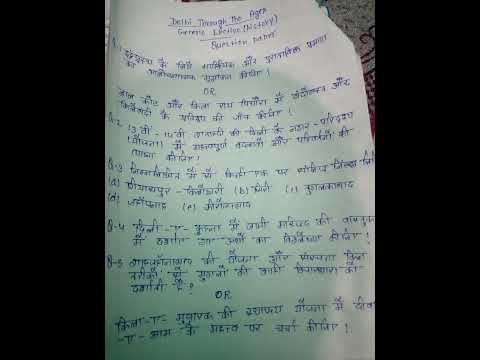 Delhi Through the Ages
Generic Elective (History)
Question paper
Q-1 इन्द्रप्रस्थ के लिये साहित्यिक और पुरातात्विक प्रमाणों
का आलोचनात्मक मूल्यांकन कीजिए !
OR
लाल कोट और किला राय पिथौरा में
के प्रतिरूप की जाँच कीजिए !
Q-2 13वीं - 14वीं शताब्दी की दिल्ली के नगर - परिदृश्य
(योजना) में महत्वपूर्ण बदलावों और परिवर्तनों की
व्याख्या कीजिए !
Q-3 निम्नलिखित में से किसी एक पर संक्षिप्त
(a) गियासपुर - किलोखरी (b) सीरी (c) तुगलकाबाद
(d) जहाँपनाह (e) फिरोजाबाद
Q-4 किला-ए-कुहना में जामी मस्जिद की वास्तुकला
में दर्शाये गए अर्थों का विश्लेषण कीजिए !
Q-5 शाहजहानाबाद की योजना और संरचना किन
तरीकों से मुगलों की शाही विचारधारा को
दर्शाती है ?
OR
किला-ए-मुबारक की स्थापत्य योजना में दीवान
-ए-आम के महत्व पर चर्चा कीजिए !